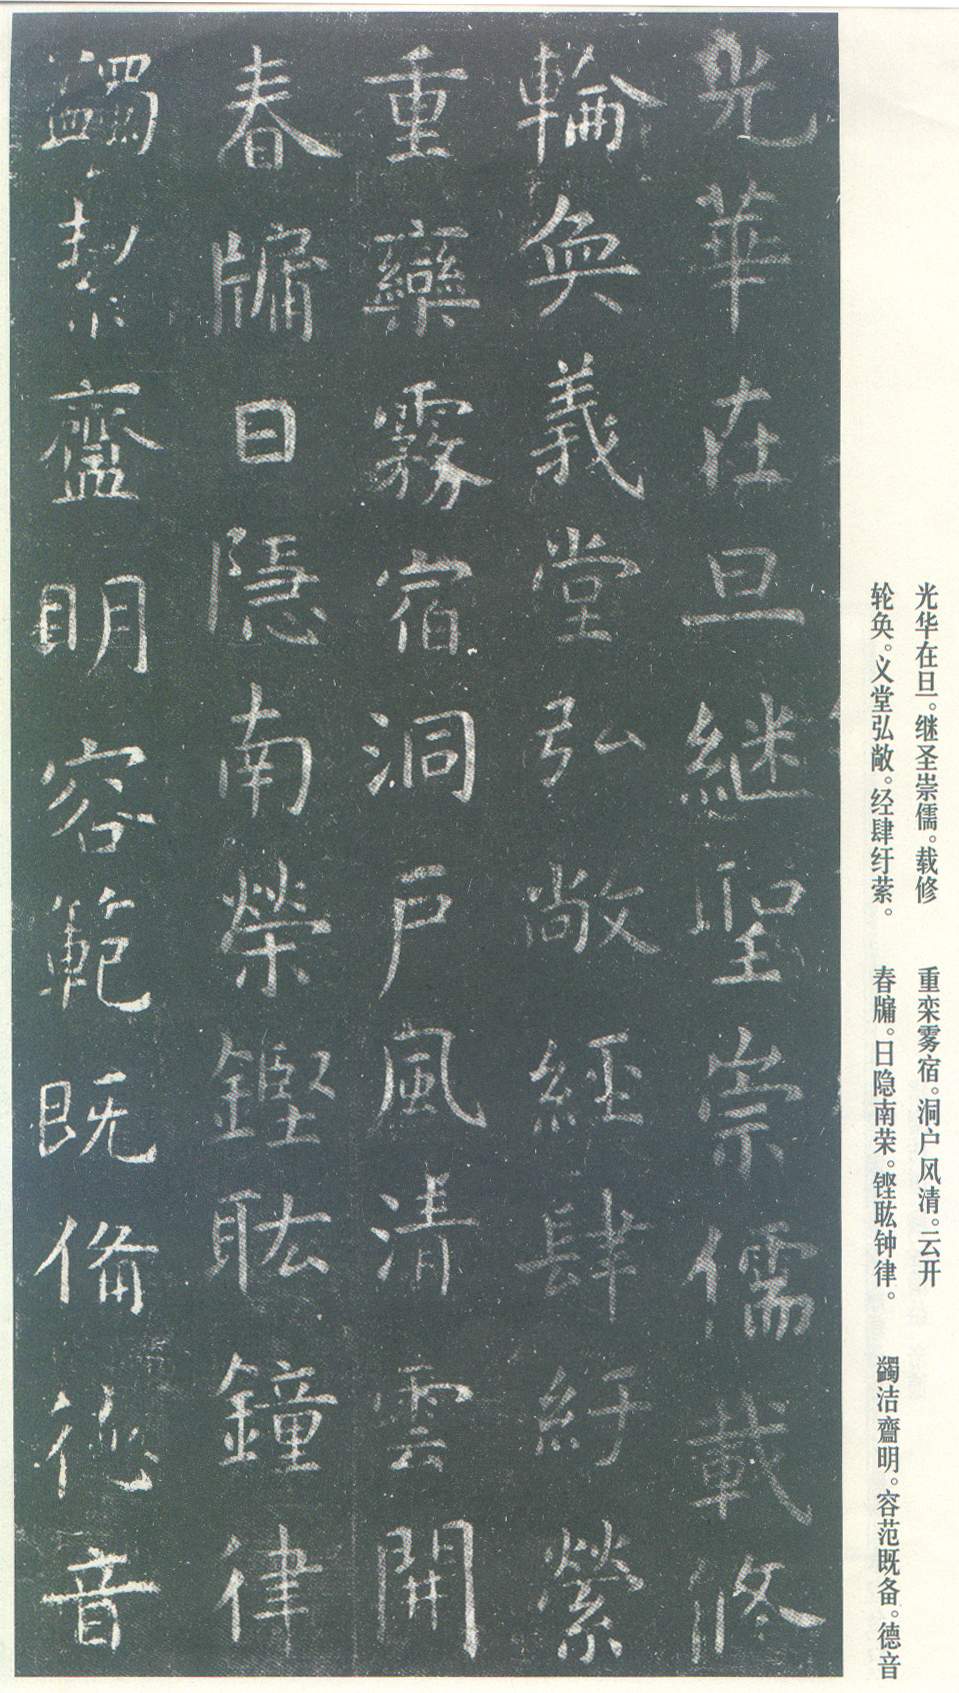 光华在旦。继圣崇儒。载修
轮奂。义堂弘敞。经肆纡萦。
重栾雾宿。洞户风清。云开
春牖。日隐南荣。铿耾钟律。
蠲洁齍明。容范既备。德音
光華在旦継聖崇儒載修
輪奐義堂弘敞經肆紆縈
重欒霧宿洞戶風清雲開
春牖日隱南榮鏗耾鐘律
蠲絜齍明容範既備德音